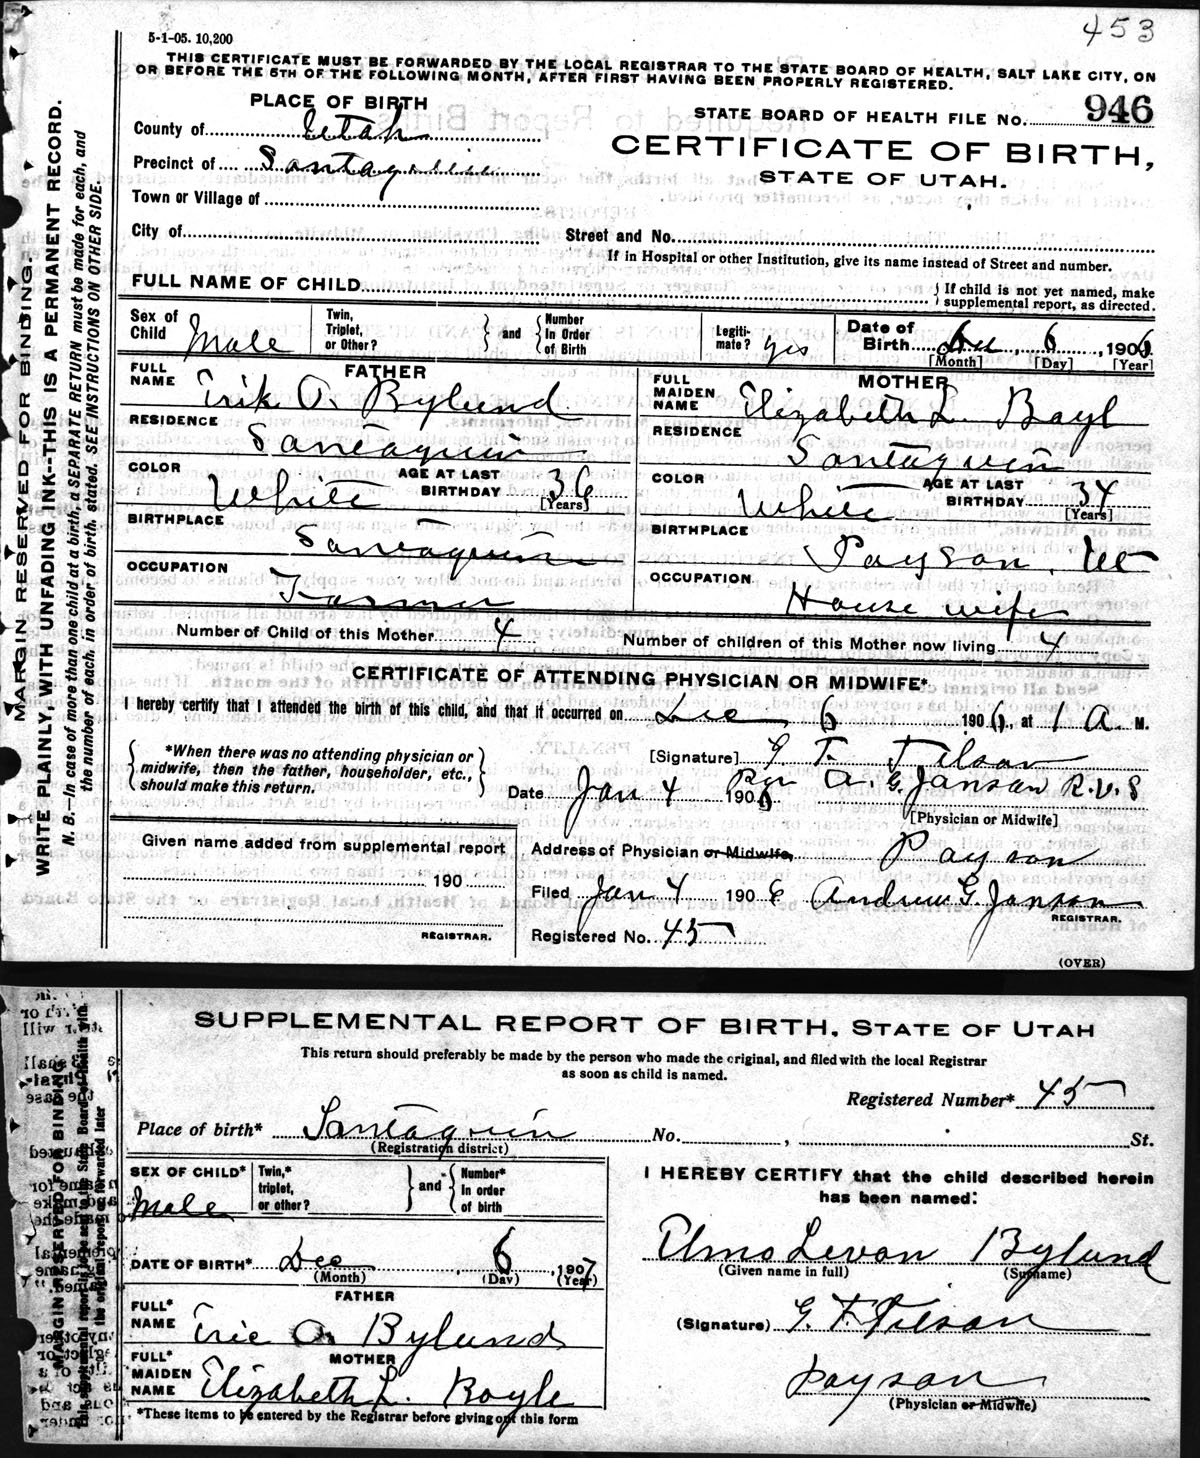 453
5-1-05. 10,200
THIS CERTIFICATE MUST BE FORWARDED BY THE LOCAL REGISTRAR TO THE STATE BOARD OF HEALTH, SALT LAKE CITY, ON
OR BEFORE THE 5TH OF THE FOLLOWING MONTH, AFTER FIRST HAVING BEEN PROPERLY REGISTERED.
PLACE OF BIRTH
STATE BOARD OF HEALTH FILE NO. 946
County of Utah
CERTIFICATE OF BIRTH,
Precinct of Santaquin
STATE OF UTAH.
Town or Village of
City of
Street and No.
If in Hospital or other Institution, give its name instead of Street and number.
FULL NAME OF CHILD
If child is not yet named, make
supplemental report, as directed.
Sex of Child Male
Twin, Triplet, or Other?
and
Number In Order of Birth
Legiti-mate? yes
Date of Birth Dec, 6, 1906
[Month] [Day] [Year]
FATHER
FULL NAME Erik O. Bylund
RESIDENCE
Santaquin
COLOR White
AGE AT LAST BIRTHDAY 36
[Years]
BIRTHPLACE
Santaquin
OCCUPATION
Farmer
MOTHER
FULL MAIDEN NAME Elizabeth L. Boyl
RESIDENCE
Santaquin
COLOR White
AGE AT LAST BIRTHDAY 34
[Years]
BIRTHPLACE
Payson, Ut
OCCUPATION
House wife
Number of Child of this Mother 4
Number of children of this Mother now living 4
CERTIFICATE OF ATTENDING PHYSICIAN OR MIDWIFE*
I hereby certify that I attended the birth of this child, and that it occurred on Dec 6 1906, at 1 A. M.
*When there was no attending physician or
midwife, then the father, householder, etc.,
should make this return.
[Signature] G. F. Tilson
Date Jan 4 190 Per A. G. Janson R.V.S
[Physician or Midwife]
Given name added from supplemental report
190
REGISTRAR.
Address of Physician or Midwife, Payson
Filed Jan 4 1906 Andrew G. Janson
REGISTRAR.
Registered No. 45
(OVER)
MARGIN RESERVED FOR BINDING.
WRITE PLAINLY, WITH UNFADING INK--THIS IS A PERMANENT RECORD.
N. B.—In case of more than one child at a birth, a SEPARATE RETURN must be made for each, and
the number of each, in order of birth, stated. SEE INSTRUCTIONS ON OTHER SIDE.
SUPPLEMENTAL REPORT OF BIRTH, STATE OF UTAH
This return should preferably be made by the person who made the original, and filed with the local Registrar
as soon as child is named.
Registered Number* 45
Place of birth* Santaquin No. , St.
(Registration district)
SEX OF CHILD* Male
Twin,* triplet, or other?
and
Number* In order of birth
DATE OF BIRTH* Dec, 6, 1907
(Month) (Day) (Year)
FATHER
FULL* NAME Eric O. Bylund
MOTHER
FULL* MAIDEN NAME Elizabeth L. Boyle
*These items to be entered by the Registrar before giving out this form
I HEREBY CERTIFY that the child described herein
has been named:
Elmo Levon Bylund
(Given name in full) (Surname)
(Signature) G. F. Tilson
Payson
(Physician or Midwife)
MARGIN RESERVED FOR BINDING